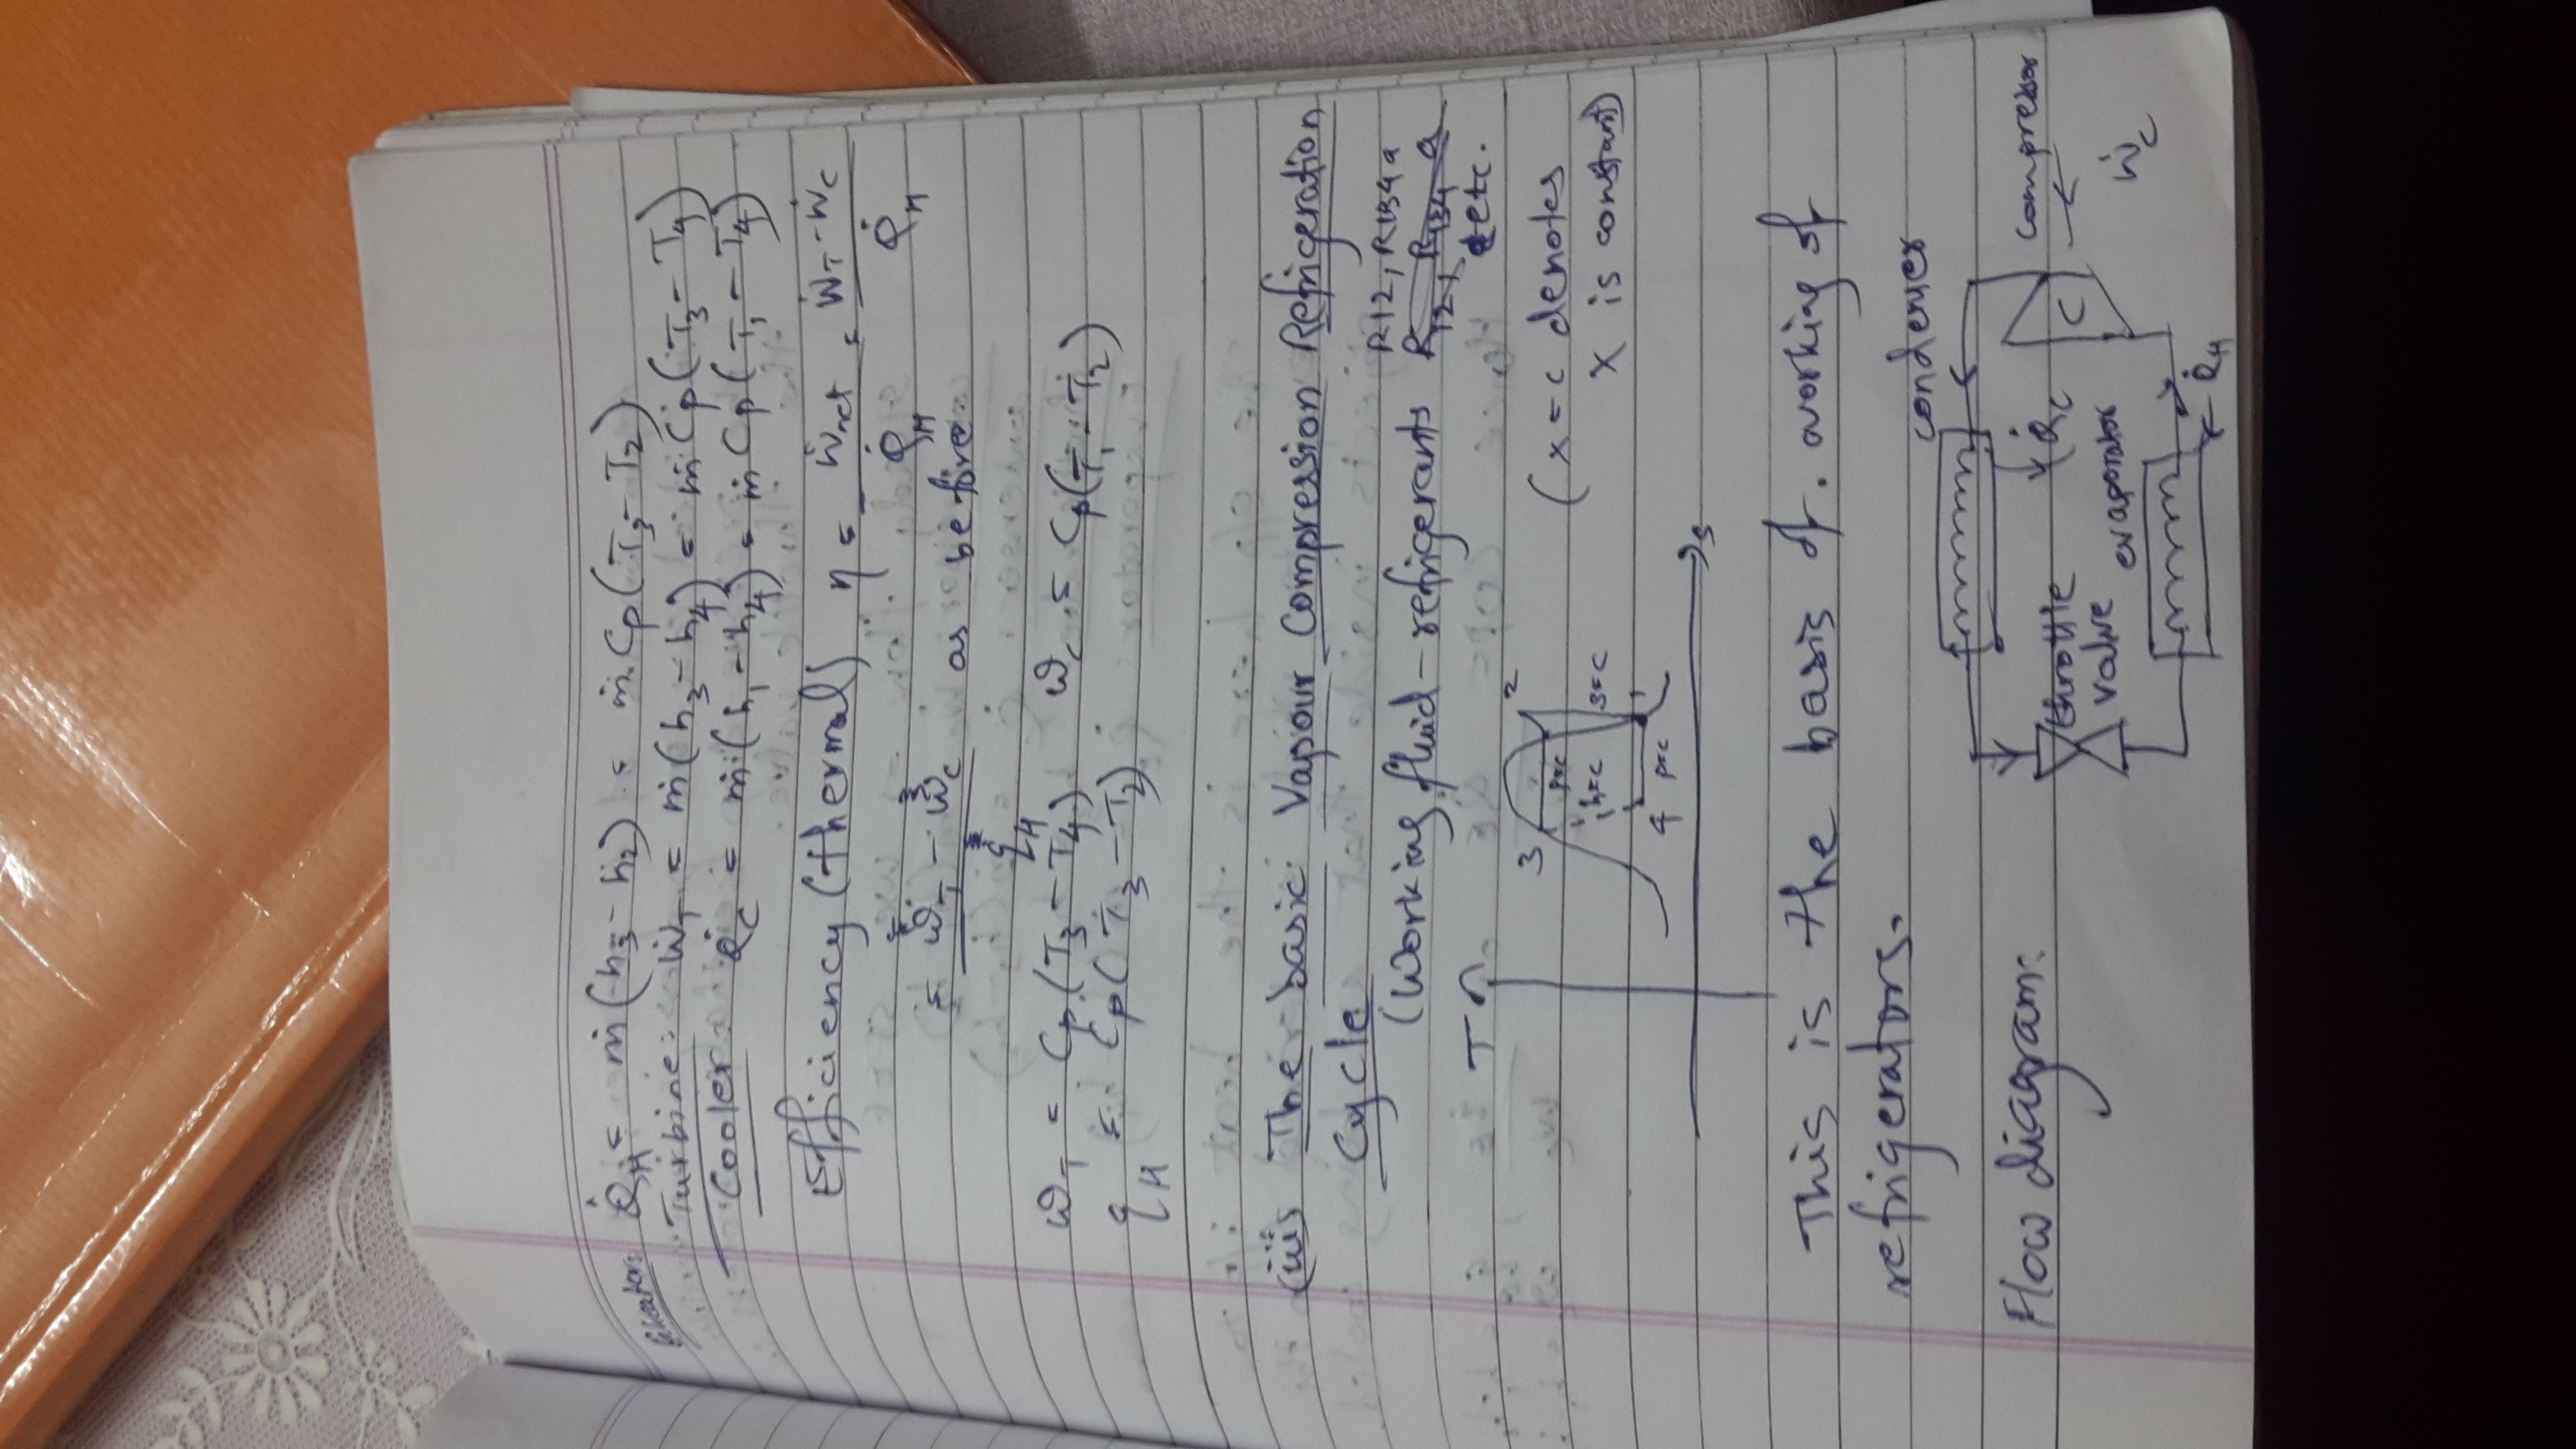 Heater: Q̇_H = ṁ(h₃ - h₂) = ṁ Cp(T₃ - T₂)
Turbine: Ẇ_T = ṁ(h₃ - h₄) = ṁ Cp(T₃ - T₄)
Cooler: Q̇_C = ṁ(h₁ - h₄) = ṁ Cp(T₁ - T₄)
Efficiency (thermal) η = Ẇnet / Q̇_H = (Ẇ_T - Ẇ_C) / Q̇_H
= (w_T - w_C) / q_H as before.
w_T = Cp(T₃ - T₄) w_C = Cp(T₁ - T₂)
q_H = Cp(T₃ - T₂)
(iii) The basic Vapour Compression Refrigeration
Cycle
R12, R134a
(Working fluid - refrigerants R12, R134a
etc.
T
3 2
p=c
h=c s=c
4 p=c 1
s
(x = c denotes
x is constant)
This is the basis of working of
refrigerators.
condenser
Flow diagram:
throttle
valve
Q̇_C
C
compressor
Ẇ_C
evaporator
Q̇_H